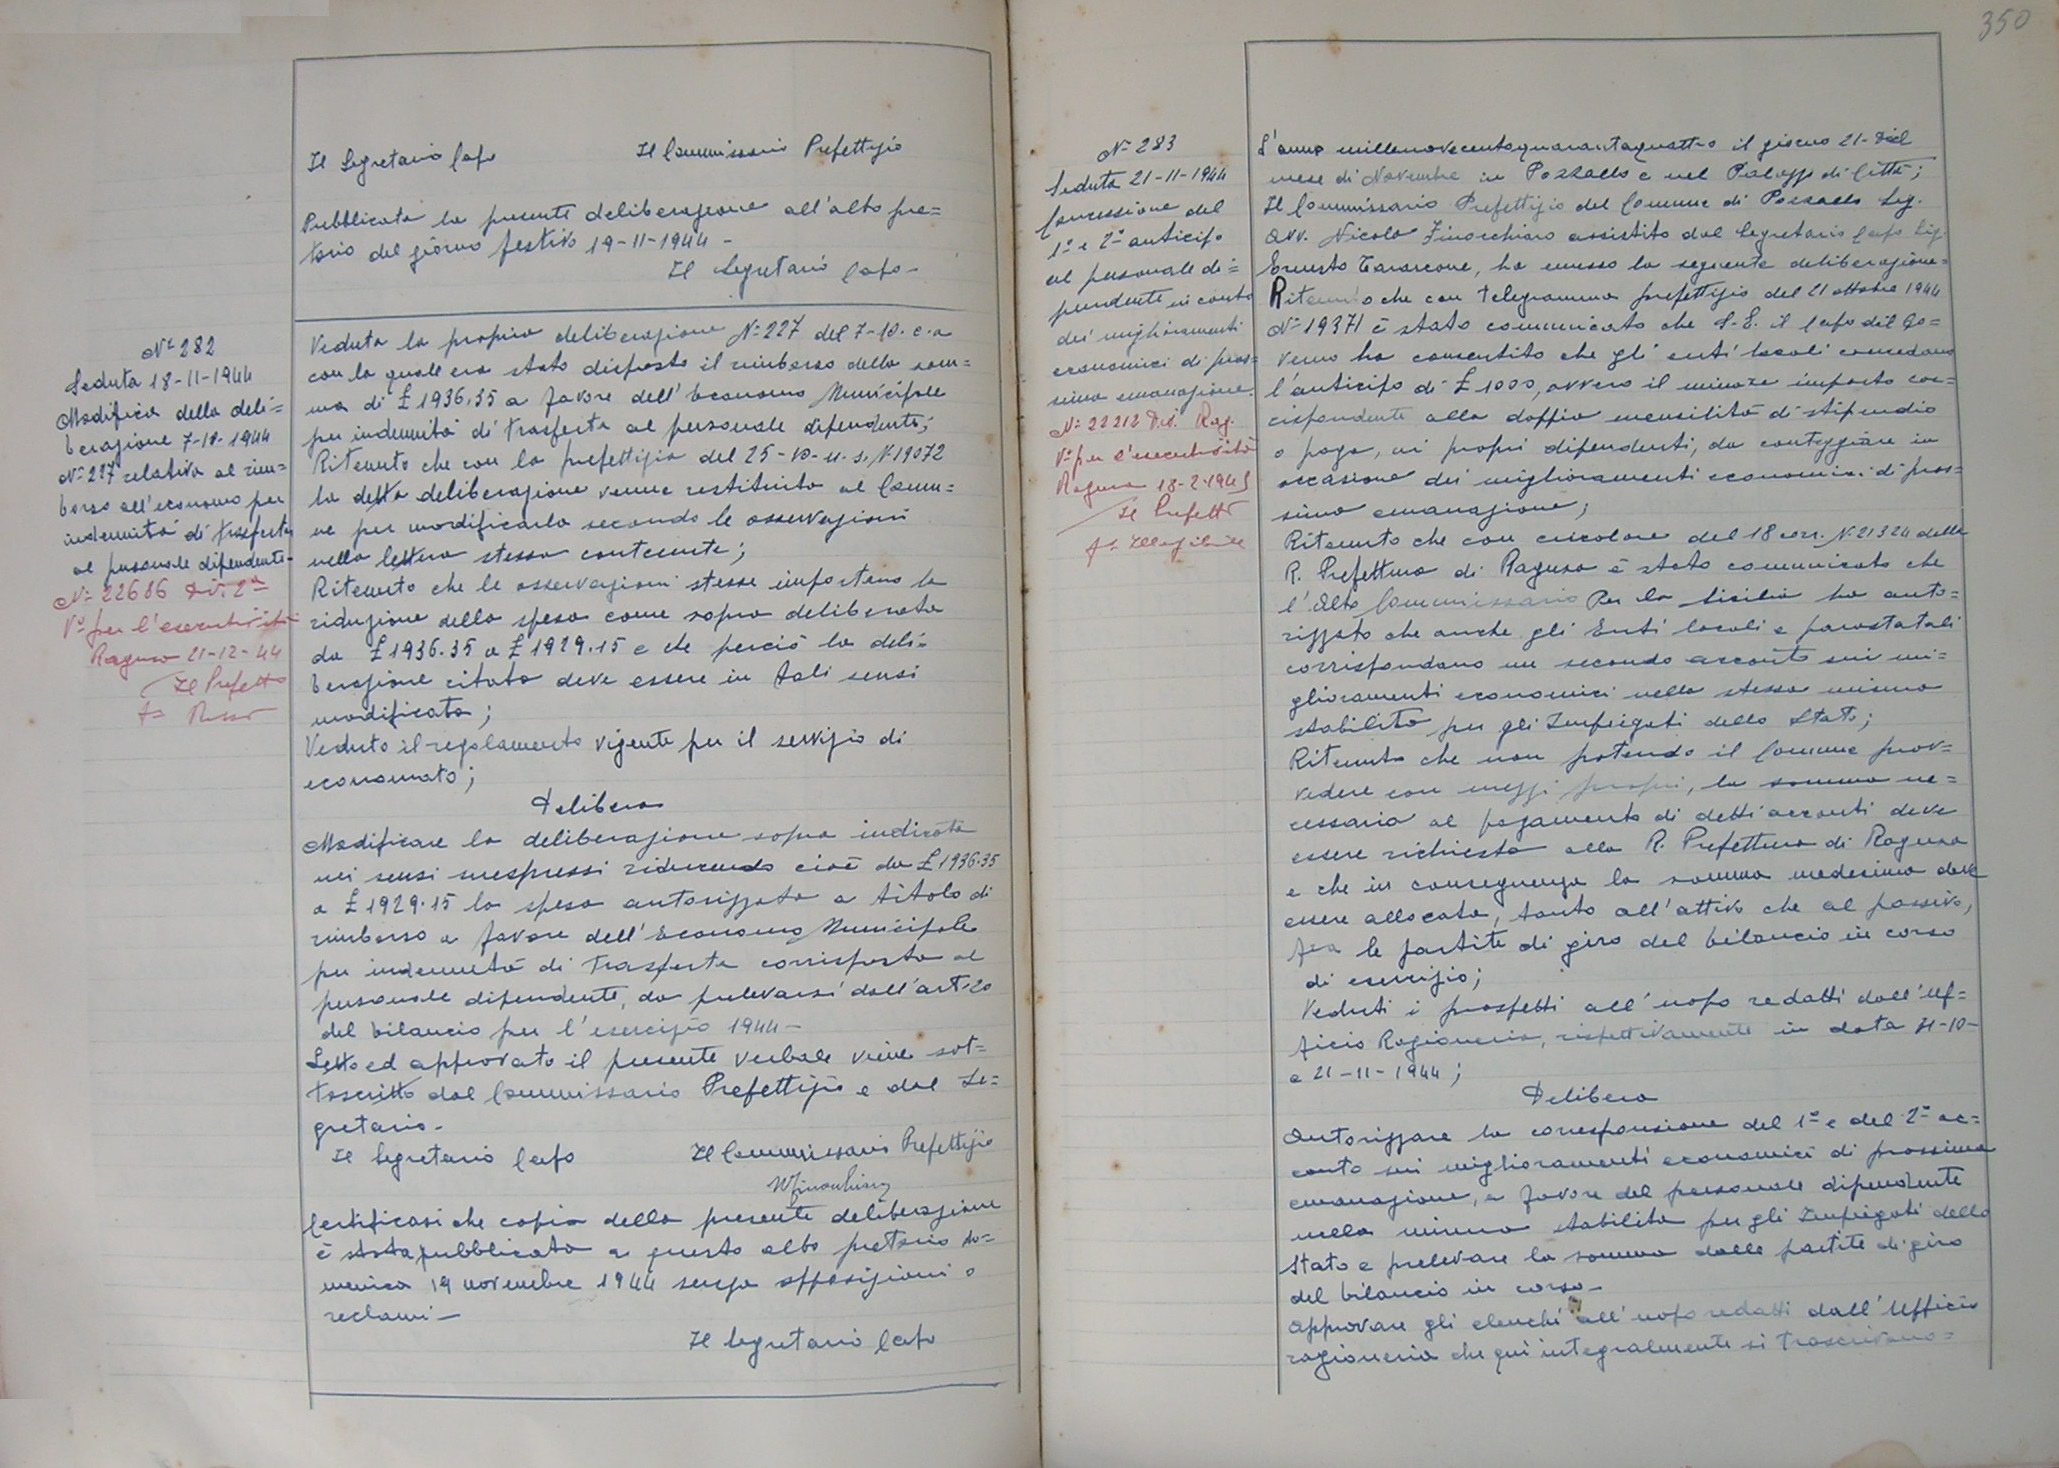 Il Segretario Capo Il Commissario Prefettizio
Pubblicata la presente deliberazione all'albo pre=
torio del giorno festivo 19-11-1944 -
Il Segretario Capo -
N° 282
Seduta 18-11-1944
Modifica della deli=
berazione 7-10-1944
N° 227 relativa al rim=
borso all'economo per
indennità di trasferta
al personale dipendente -
N° 22686 Div. 2ª
V° per l'esecutività
Ragusa 21-12-44
Il Prefetto
Veduta la propria deliberazione N° 227 del 7-10-c.a
con la quale era stato disposto il rimborso della som=
ma di £ 1936.35 a favore dell'Economo Municipale
per indennità di trasferta al personale dipendente;
Ritenuto che con la prefettizia del 25-10-u.s. N. 19072
la detta deliberazione venne restituita al Comu=
ne per modificarla secondo le osservazioni
nella lettera stessa contenute;
Ritenuto che le osservazioni stesse importano la
riduzione della spesa come sopra deliberata
da £ 1936.35 a £ 1929.15 e che perciò la deli=
berazione citata deve essere in tali sensi
modificata;
Veduto il regolamento vigente per il servizio di
economato;
Delibera
Modificare la deliberazione sopra indicata
nei sensi suespressi riducendo cioè da £ 1936.35
a £ 1929.15 la spesa autorizzata a titolo di
rimborso a favore dell'Economo Municipale
per indennità di trasferta corrisposta al
personale dipendente, da prelevarsi dall'art. 20
del bilancio per l'esercizio 1944 -
Letto ed approvato il presente verbale viene sot=
toscritto dal Commissario Prefettizio e dal Se=
gretario -
Il Segretario Capo Il Commissario Prefettizio
Certificasi che copia della presente deliberazione
è stata pubblicata a questo albo pretorio do=
menica 19 novembre 1944 senza opposizioni o
reclami -
Il Segretario Capo
350
N° 283
Seduta 21-11-1944
Concessione del
1° e 2° anticipo
al personale di=
pendente in conto
dei miglioramenti
economici di pros=
sima emanazione.
N° 22212 Div. Rag.
V° per l'esecutività
Ragusa 18-2-1945
Il Prefetto
f° Illegibile
L'anno millenovecentoquarantaquattro il giorno 21- del
mese di Novembre in Pozzallo e nel Palazzo di Città;
Il Commissario Prefettizio del Comune di Pozzallo Sig.
Avv. Nicola Finocchiaro assistito dal Segretario Capo Sig.
Ernesto Tarascone, ha emesso la seguente deliberazione=
Ritenuto che con telegramma prefettizio del 21 ottobre 1944
N° 19371 è stato comunicato che S.E. il Capo del Go=
verno ha consentito che gli enti locali concedano
l'anticipo di £ 1000, ovvero il minore importo cor=
rispondente alla doppia mensilità di stipendio
o paga, ai propri dipendenti, da conteggiare in
occasione dei miglioramenti economici di pros=
sima emanazione;
Ritenuto che con circolare del 18 corr. N. 21324 della
R. Prefettura di Ragusa è stato comunicato che
l'Alto Commissario per la Sicilia ha auto=
rizzato che anche gli Enti locali e parastatali
corrispondano un secondo acconto sui mi=
glioramenti economici nella stessa misura
stabilita per gli Impiegati dello Stato;
Ritenuto che non potendo il Comune prov=
vedere con mezzi propri, la somma ne=
cessaria al pagamento di detti acconti deve
essere richiesta alla R. Prefettura di Ragusa
e che in conseguenza la somma medesima deve
essere allocata, tanto all'attivo che al passivo,
fra le partite di giro del bilancio in corso
di esercizio;
Veduti i prospetti all'uopo redatti dall'Uf=
ficio Ragioneria, rispettivamente in data 31-10-
e 21-11-1944;
Delibera
Autorizzare la corresponsione del 1° e del 2° ac=
conto sui miglioramenti economici di prossima
emanazione, a favore del personale dipendente
nella misura stabilita per gli Impiegati dello
Stato e prelevare la somma dalle partite di giro
del bilancio in corso -
Approvare gli elenchi all'uopo redatti dall'Ufficio
ragioneria che qui integralmente si trascrivono=